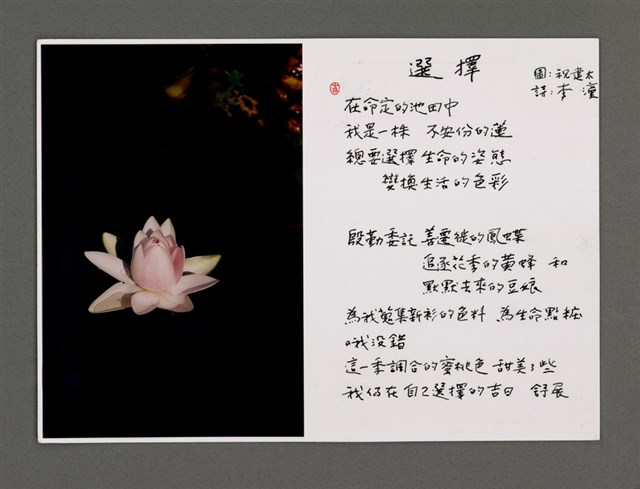 選擇
圖:祝建太
詩:李潼
在命定的池田中
我是一株 不安份的蓮
總要選擇生命的姿態
變換生活的色彩
殷勤委託善遷徙的鳳蝶
追逐花季的黃蜂 和
默默去來的豆娘
為我蒐集新衫的色料 為生命點妝
哦我沒錯
這一季調合的蜜桃色 甜美了些
我仍在自己選擇的吉日 舒展